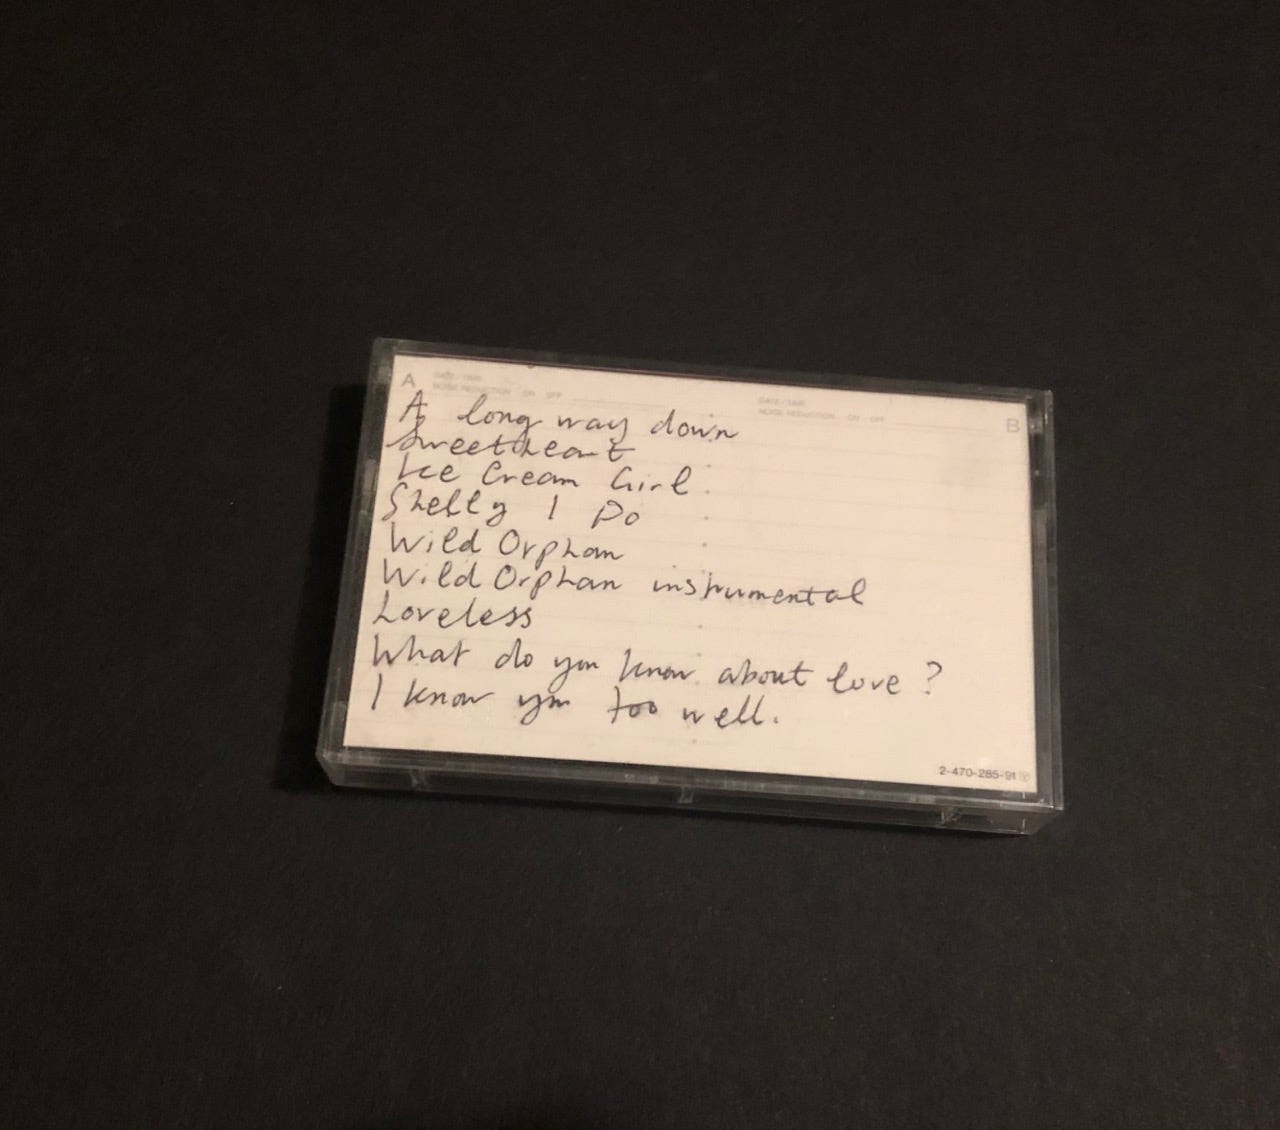 A
DATE/TIME
NOISE REDUCTION ON OFF
DATE/TIME
NOISE REDUCTION ON OFF
B
A long way down
Sweetheart
Ice Cream Girl.
Shelly I Do
Wild Orphan
Wild Orphan instrumental
Loveless
What do you know about love?
I know you too well.
2-470-285-91